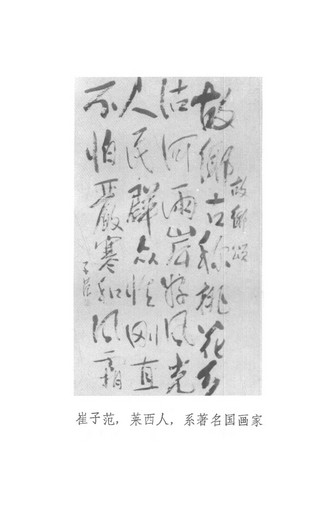 故鄉颂
故鄉古称桃花乡
沽河两岸好风光
人民群众性刚直
不怕嚴寒和风霜
子范
崔子范，莱西人，系著名国画家